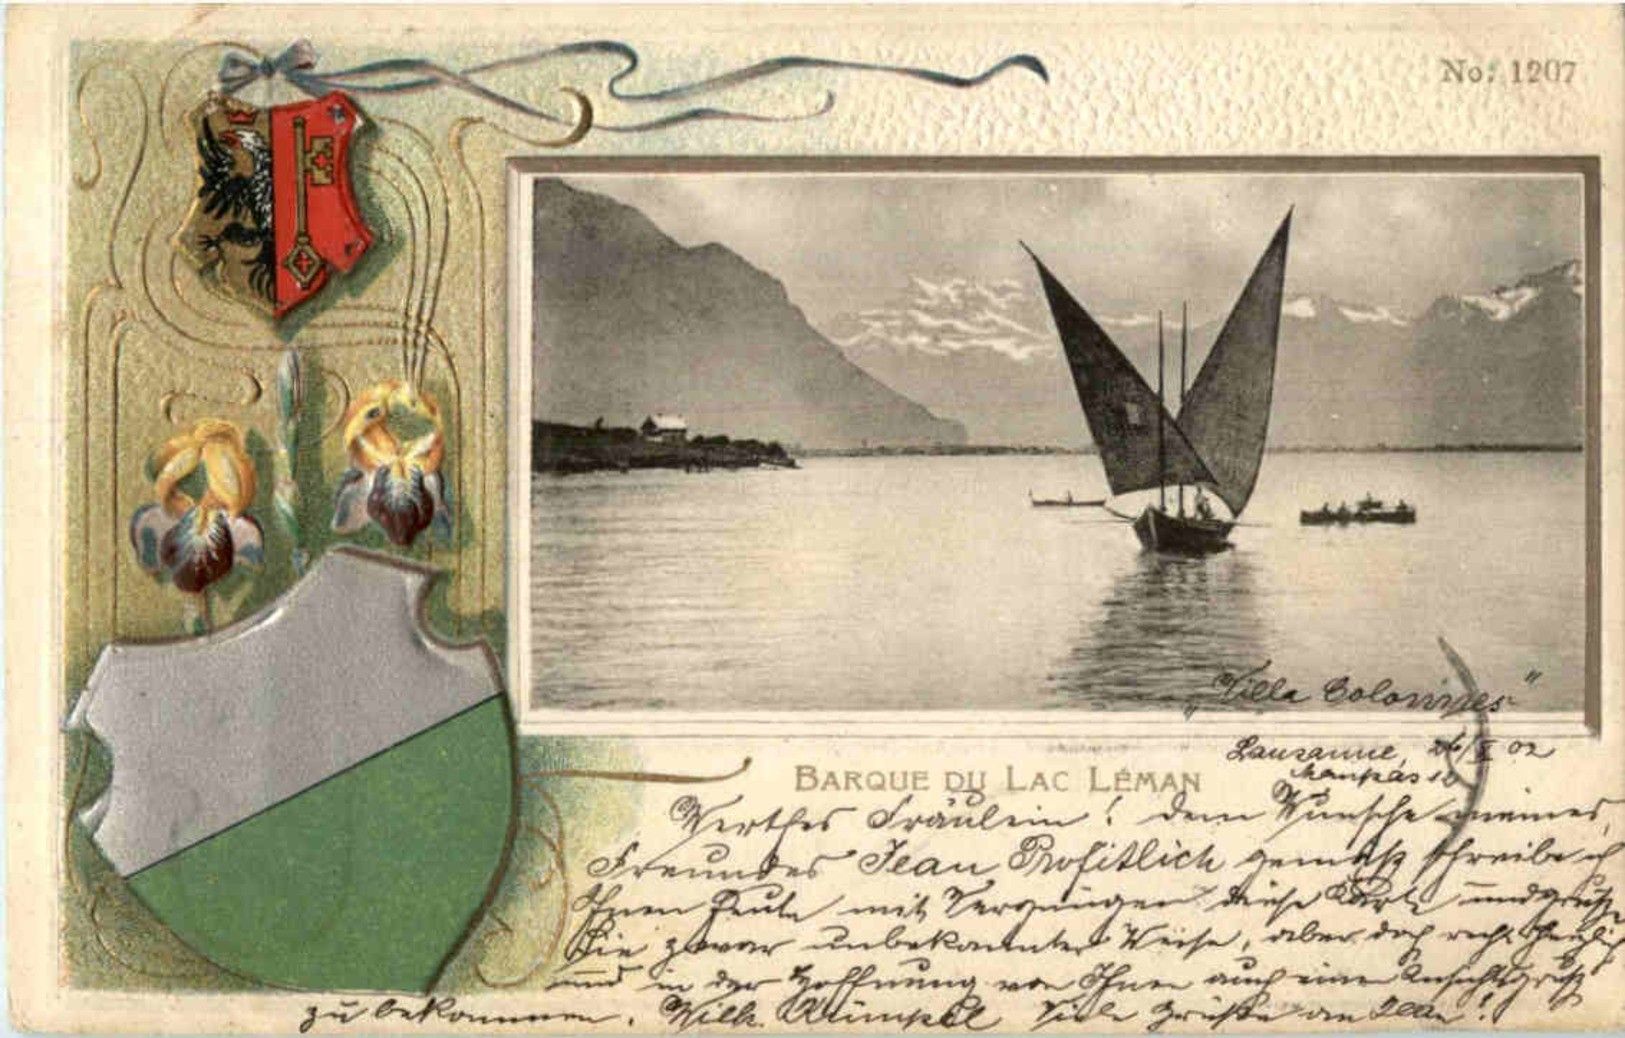 No. 1207
"Villa Colonnes"
Lausanne, 26/X 02
Maupas 12
BARQUE DU LAC LÉMAN
Werthes Fräulein! Dem Wunsche meines
Freundes Jean Profitlich gemäß schreibe ich
Ihnen heute mit Vergnügen diese Karte und grüße
Sie zwar unbekannter Weise, aber doch recht herzlich
und in der Hoffnung von Ihnen auch einen Ansichtsgruß
zu bekommen. Wilh. Rümpel Viele Grüße an Jean!